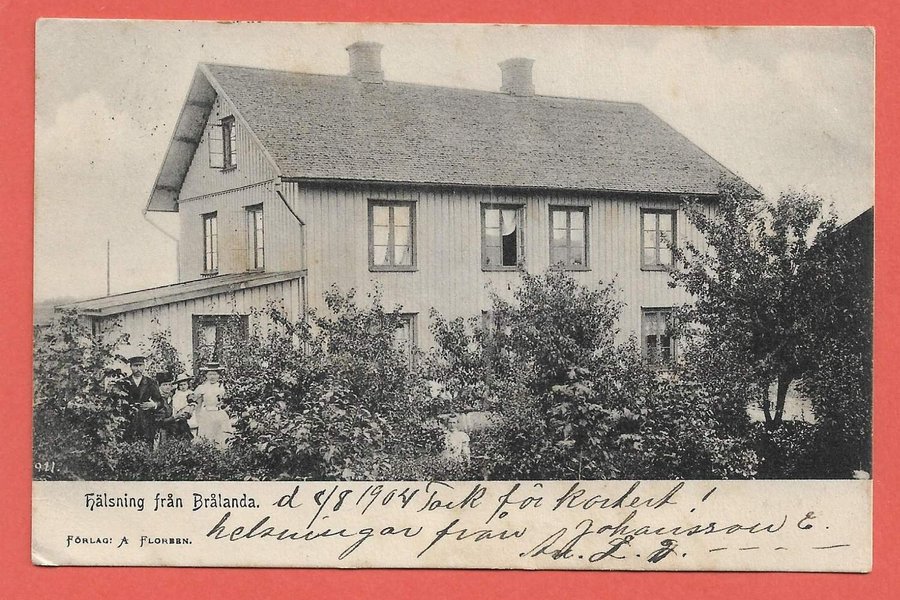 911.
Hälsning från Brålanda. d 8/8 1904 Tack för kortert!
Förlag: A Floreen. helsningar från Johansson E.
An. L. J. – – – –